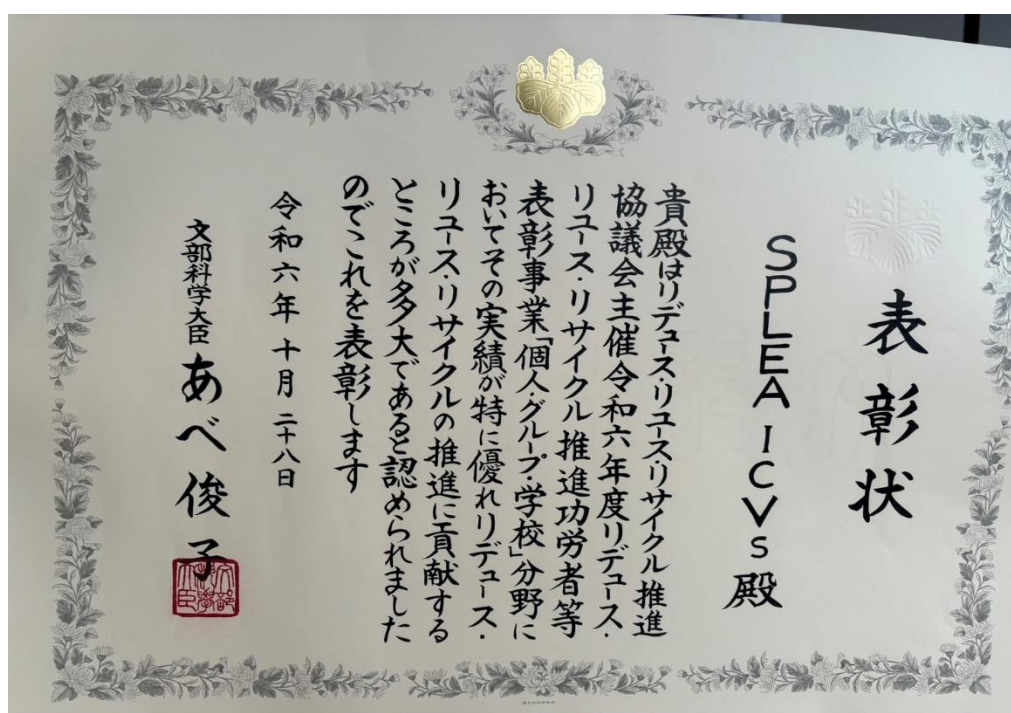 表彰状
SPLEA ICVs 殿
貴殿はリデュース・リユース・リサイクル推進
協議会主催令和六年度リデュース・
リユース・リサイクル推進功労者等
表彰事業「個人・グループ・学校」分野に
おいてその実績が特に優れリデュース・
リユース・リサイクルの推進に貢献する
ところが多大であると認められました
のでこれを表彰します
令和六年十月二十八日
文部科学大臣 あべ俊子